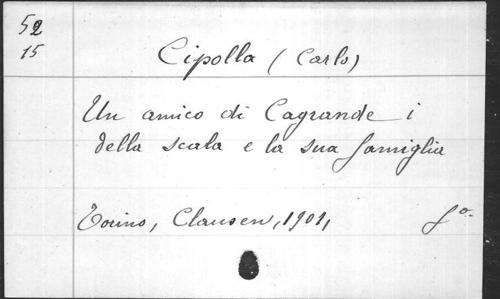 52
15
Cipolla (Carlo)
Un amico di Cagrande i
della scala e la sua famiglia
Torino, Clausen, 1901,
fo.